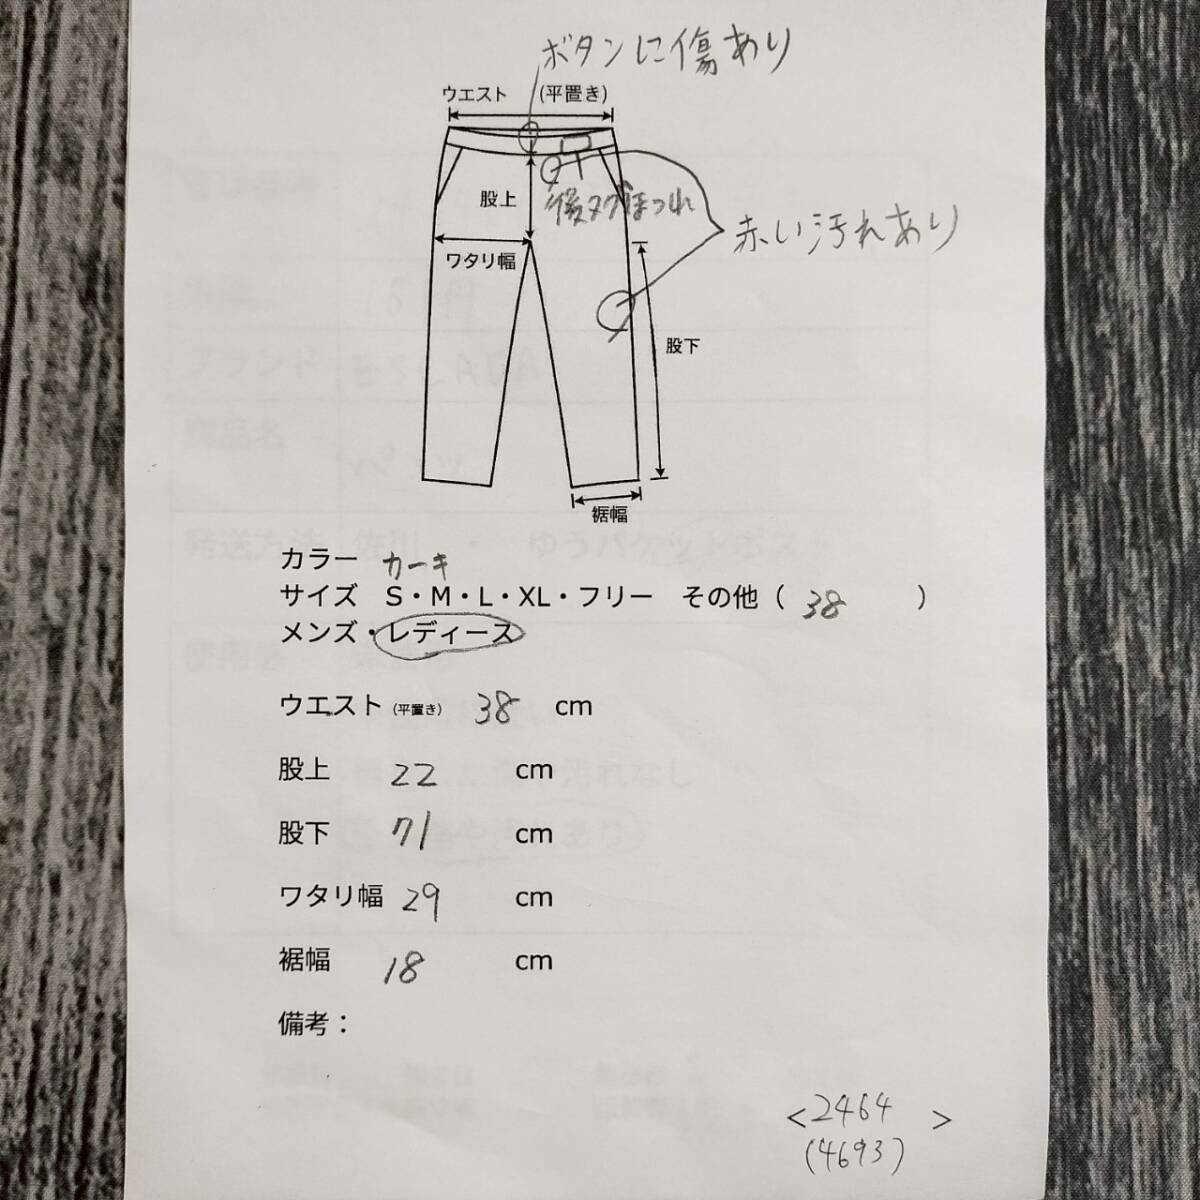 ボタンに傷あり
ウエスト (平置き)
股上
後タグほつれ
赤い汚れあり
ワタリ幅
股下
裾幅
カラー カーキ
サイズ S・M・L・XL・フリー その他（ 38 ）
メンズ・レディース
ウエスト (平置き) 38 cm
股上 22 cm
股下 71 cm
ワタリ幅 29 cm
裾幅 18 cm
備考：
<2464 >
(4693)